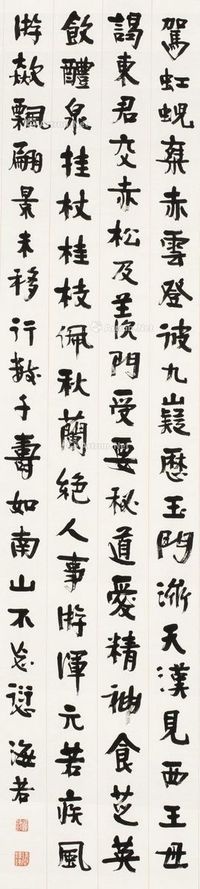 駕虹蜺乘赤雲登彼九嶷歷玉門濟天漢見西王母
謁東君交赤松及羨門受要秘道愛精神食芝英
飲醴泉拄杖桂枝佩秋蘭絕人事游渾元若疾風
游欻飄翩景未移行數千壽如南山不忘愆海若